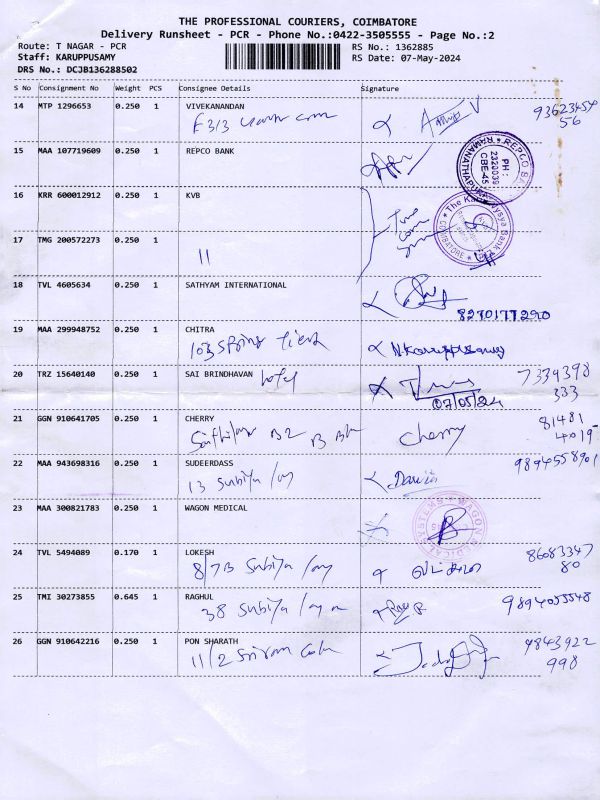 THE PROFESSIONAL COURIERS, COIMBATORE
Delivery Runsheet - PCR - Phone No.:0422-3505555 - Page No.:2
Route: T NAGAR - PCR
RS No.: 1362885
Staff: KARUPPUSAMY
RS Date: 07-May-2024
DRS No.: DCJB136288502
S No Consignment No Weight PCS Consignee Details Signature
14 MTP 1296653 0.250 1 VIVEKANANDAN
F 313
56
15 MAA 107719609 0.250 1 REPCO BANK
REPCO BANK
RAMANATHAPURAM
PH :
2320039
CBE-45
16 KRR 600012912 0.250 1 KVB
The Karur Vysya Bank
COIMBATORE
17 TMG 200572273 0.250 1
11
18 TVL 4605634 0.250 1 SATHYAM INTERNATIONAL
8270177290
19 MAA 299948752 0.250 1 CHITRA
103 Spring
N.Karuppusamy
20 TRZ 15640140 0.250 1 SAI BRINDHAVAN hotel
7339398
333
07/05/24
21 GGN 910641705 0.250 1 CHERRY
B2
Cherry
81481
4019
22 MAA 943698316 0.250 1 SUDEERDASS
13 Subiya
9894558901
23 MAA 300821783 0.250 1 WAGON MEDICAL
WAGON MEDICAL SYSTEMS
24 TVL 5494089 0.170 1 LOKESH
8/7B Subiya
86083347
80
25 TMI 30273855 0.645 1 RAGHUL
38 Subiya
9894055548
26 GGN 910642216 0.250 1 PON SHARATH
11/2 Sriram
9843922
998